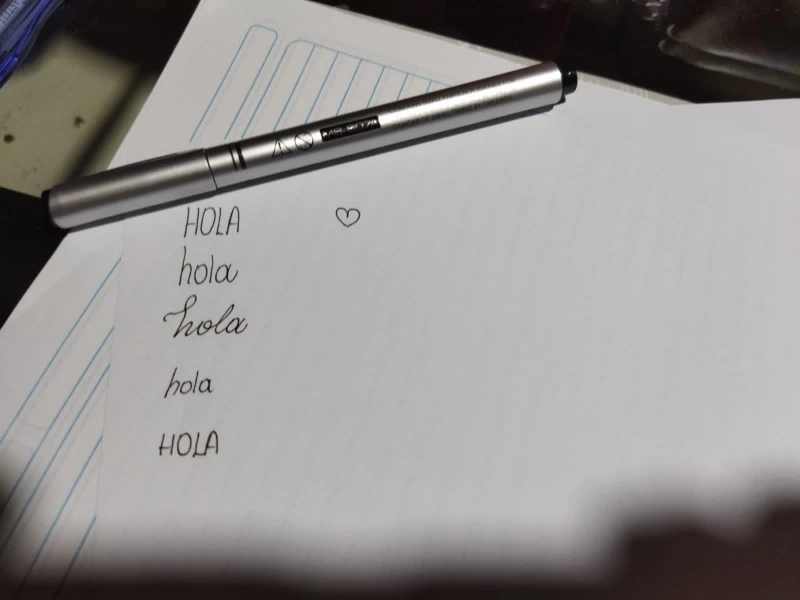 HOLA
hola
hola
hola
HOLA